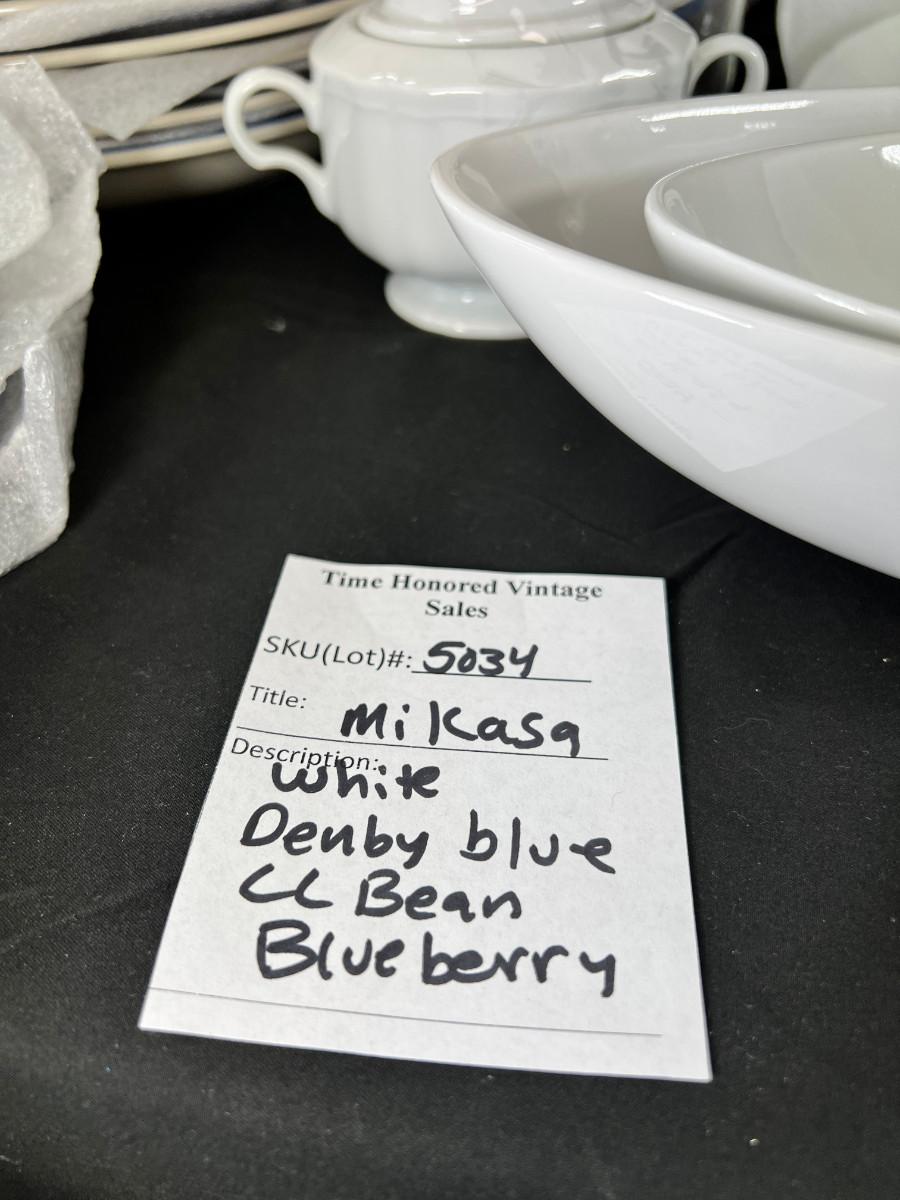 Time Honored Vintage
Sales
SKU(Lot)#: 5034
Title: Mikasa
Description:
White
Denby blue
LL Bean
Blueberry